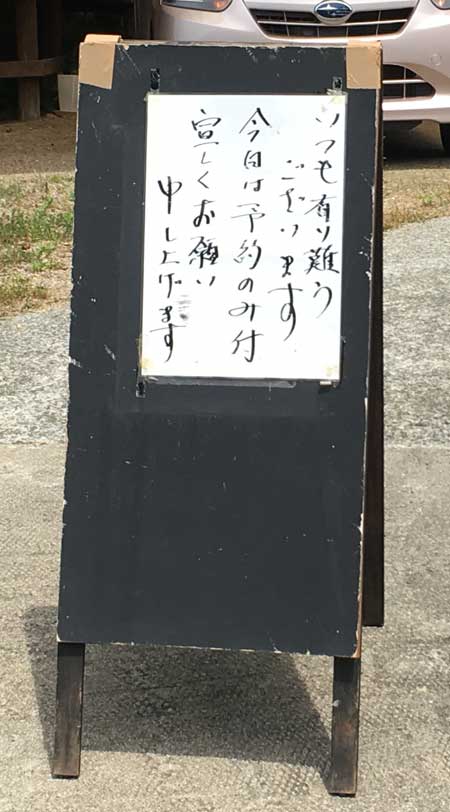 いつも有り難う
ございます
今日は予約のみ付
宜しくお願い
申し上げます